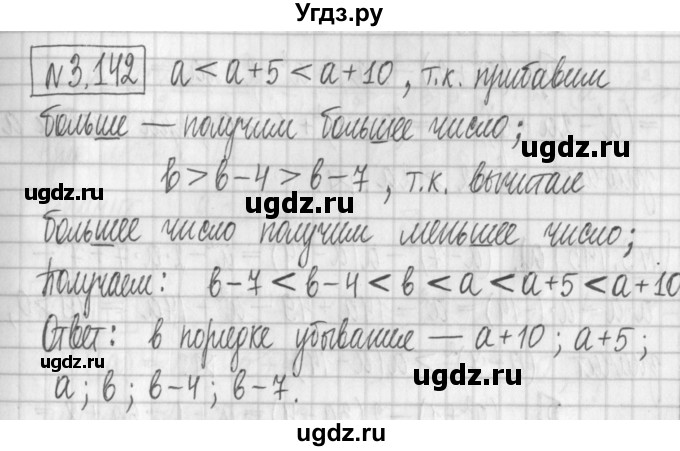 Угдз.ру
№3.142 a < a+5 < a+10, т.к. прибавим
больше — получим большее число;
в > в-4 > в-7, т.к. вычитая
большее число получим меньшее число;
Получаем: в-7 < в-4 < в < a < a+5 < a+10
Ответ: в порядке убывание — a+10; a+5;
a; в; в-4; в-7.
ugdz.ru
ugdz.ru
ugdz.ru
ugdz.ru
ugdz.ru
ugdz.ru